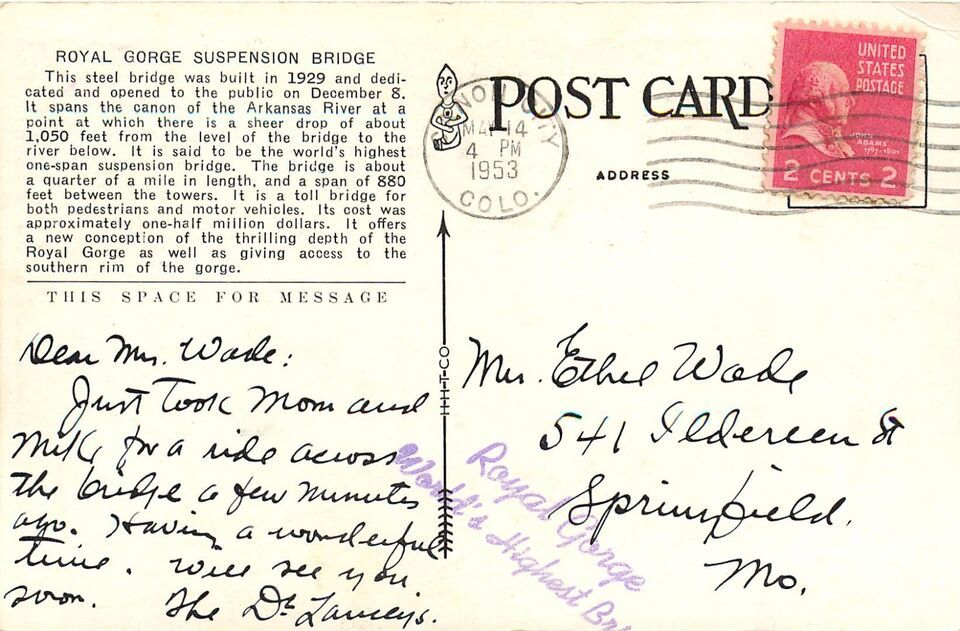 ROYAL GORGE SUSPENSION BRIDGE
This steel bridge was built in 1929 and dedi-
cated and opened to the public on December 8.
It spans the canon of the Arkansas River at a
point at which there is a sheer drop of about
1,050 feet from the level of the bridge to the
river below. It is said to be the world's highest
one-span suspension bridge. The bridge is about
a quarter of a mile in length, and a span of 880
feet between the towers. It is a toll bridge for
both pedestrians and motor vehicles. Its cost was
approximately one-half million dollars. It offers
a new conception of the thrilling depth of the
Royal Gorge as well as giving access to the
southern rim of the gorge.
THIS SPACE FOR MESSAGE
Dear Mrs. Wade:
Just took Mom and
Mike for a ride across
the bridge a few minutes
ago. Having a wonderful
time. Will see you
soon. The
HT-CO
POST CARD
ADDRESS
CITY
MAY 14
4 PM
1953
COLO.
UNITED
STATES
POSTAGE
JOHN
ADAMS
1797-1801
2 CENTS 2
Mrs. Ethel Wade
541 St
Springfield.
Mo.
Royal Gorge
World's Highest Bri